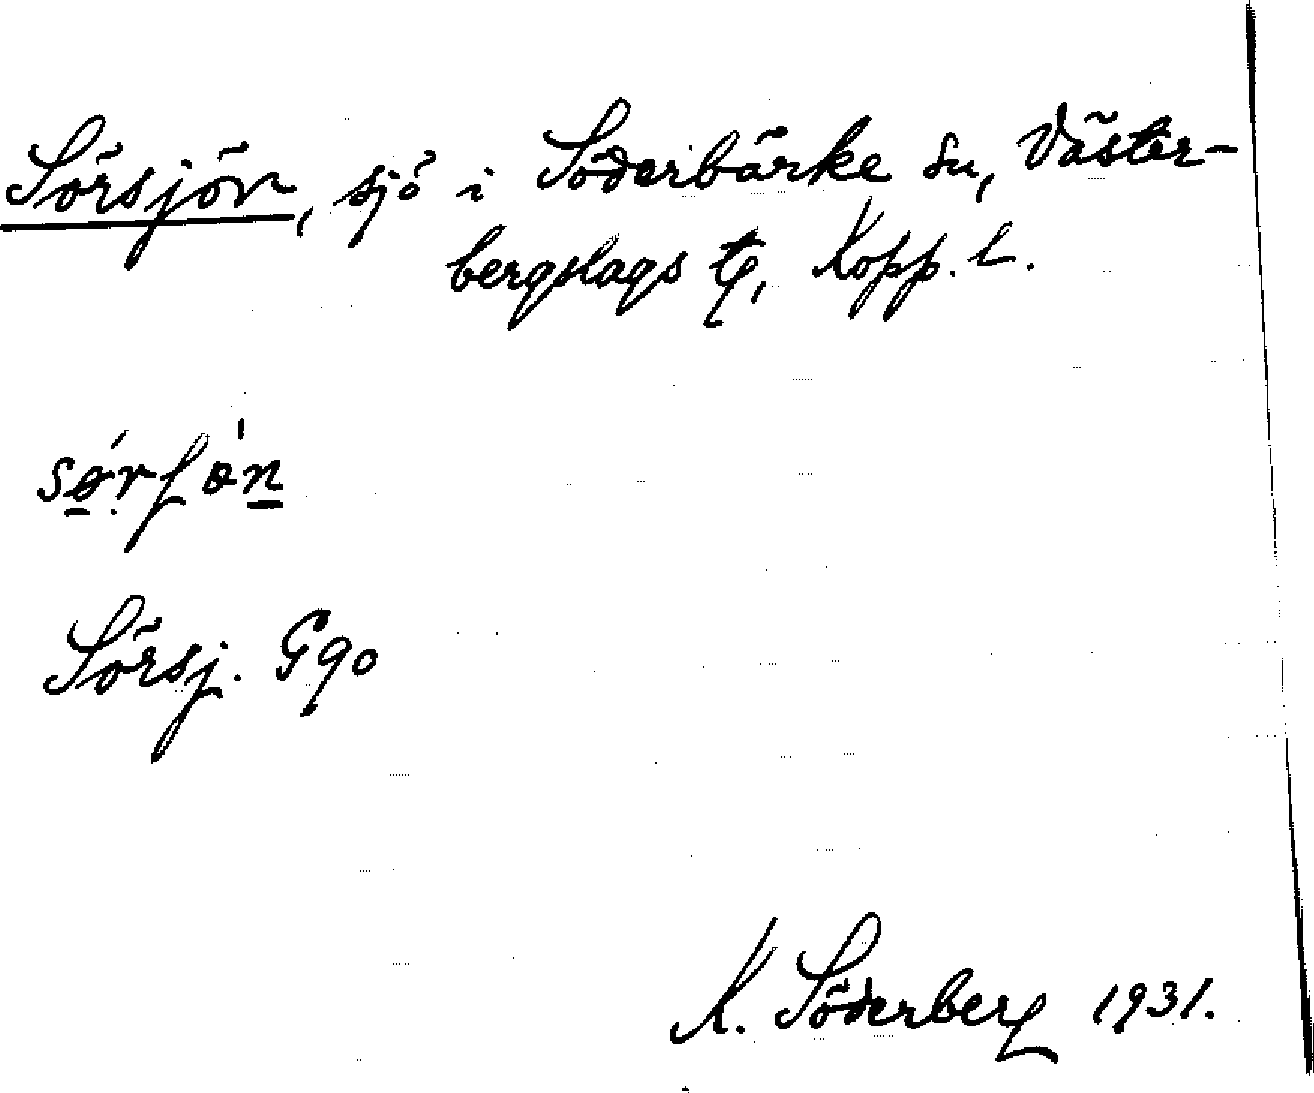 Sörsjön, sjö i Söderbärke sn, Väster-
bergslags tg, Kopp. L.
Sörsj. G 90
K. Söderberg 1931.